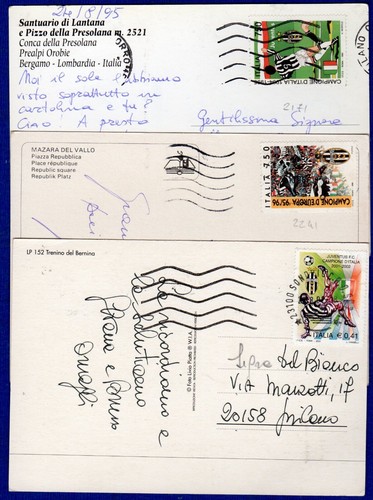 24/8/95
Santuario di Lantana
e Pizzo della Presolana m. 2521
Conca della Presolana
Prealpi Orobie
Bergamo - Lombardia - Italia
Noi il sole abbiamo
visto soprattutto in
cartolina e tu?
Ciao! A presto
Gentilissima Signora
ITALIA 750
2171
MAZARA DEL VALLO
Piazza Repubblica
Place république
Republic square
Republik Platz
ITALIA 750
CAMPIONE D'EUROPA 95/96
2241
LP 152 Trenino del Bernina
JUVENTUS F.C.
CAMPIONE D'ITALIA
2001-2002
ITALIA € 0,41
23100 SONDRIO
La ricordiamo e
la salutiamo
© Foto Livio Piatta
Sig.ra Del Bianco
VIA Manzotti, 17
20158 Milano